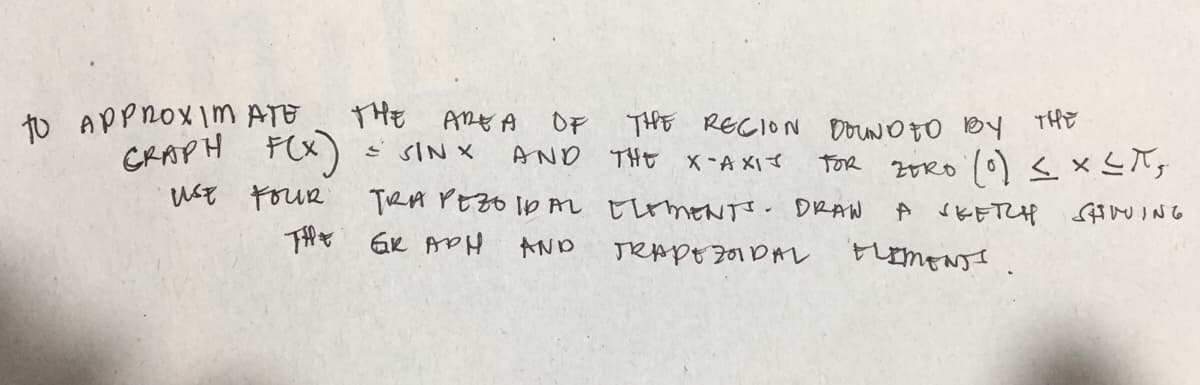 TO APPROXIMATE THE AREA OF THE REGION BOUNDED BY THE
GRAPH F(X) = SIN X AND THE X-AXIS FOR ZERO (0) ≤ X ≤ π,
USE FOUR TRAPEZOIDAL ELEMENTS. DRAW A SKETCH SHOWING
THE GRAPH AND TRAPEZOIDAL ELEMENTS.